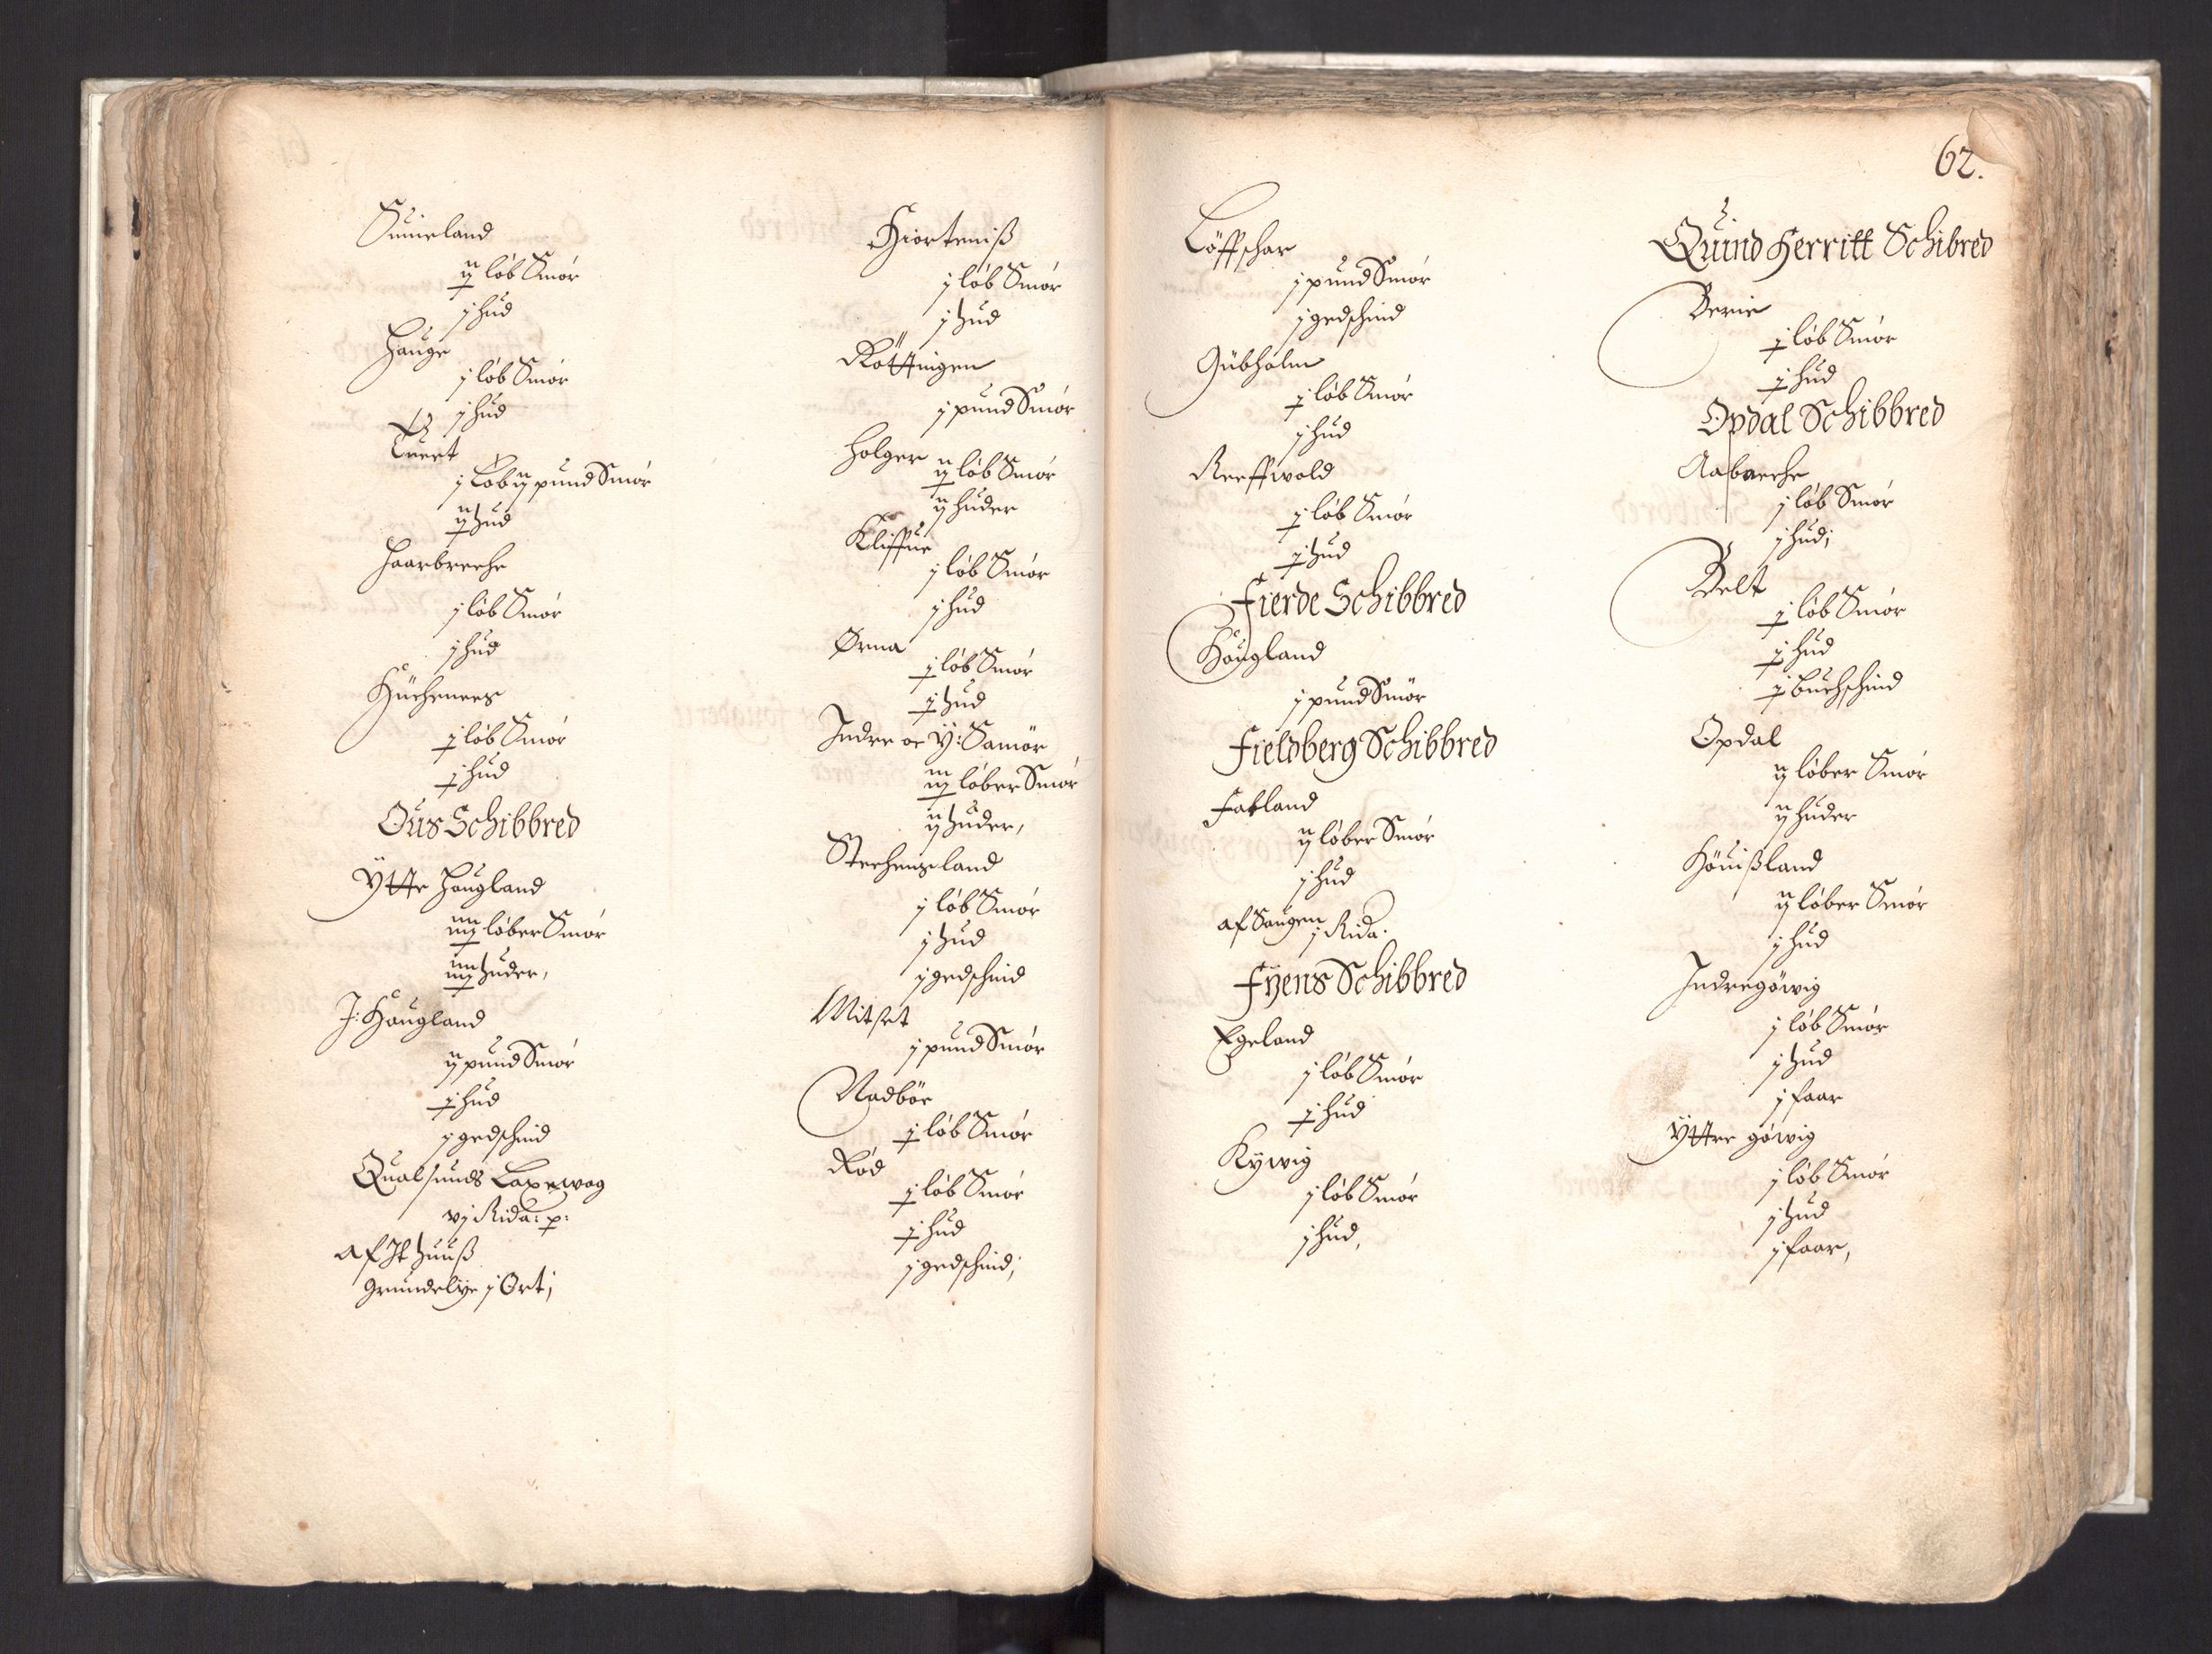 Suineland
ij løb Smør
j hud
Hauge
j løb Smør
j hud
Tuert
j Løb ij pund Smør
ij hud
Haarbreche
j løb Smør
j hud
Küchenees
j løb Smør
j hud
Ous Schibbred
Ÿtte Hougland
iiij løber Smør
iiij huder,
J: Hougland
ij pund Smør
j hud
j gedschind
Qualsunds Laxewog
vj Rida: p:
Af It huuß
Grundelye j Ort;
Hiorteniß
j løb Smør
j hud
Röttingen
j pund Smør
Holger
ij løb Smør
ij huder
Kliffue
j løb Smør
j hud
Ørna
j løb Smør
j hud
Indre oc Y: Samör
iij løber Smør
ij huder,
Strehensland
j løb Smør
j hud
j gedschind
Mitset
j pund Smør
Nadbör
j løb Smør
Rød
j løb Smør
j hud
j gedschind;
62.
Löffschar
j pund Smør
j gedschind
Gubholm
j løb Smør
j hud
Reeffwold
j løb Smør
j hud
Fierde Schibbred
Hougland
j pund Smør
Fieldberg Schibbred
Fatland
ij løber Smør
j hud
af Saugen
j Rida.
Fÿens Schibbred
Egeland
j løb Smør
j hud
Kÿwig
j løb Smør
j hud,
Quind Herritt Schibred
Berie
j løb Smør
j hud
Opdal Schibbred
Aabreche
j løb Smør
j hud;
Belt
j løb Smør
j hud
j buchschind
Opdal
ij løber Smør
ij huder
Höuißland
ij løber Smør
j hud
Indregöwig
j løb Smør
j hud
j faar
Ÿttre göwig
j løb Smør
j hud
j faar,